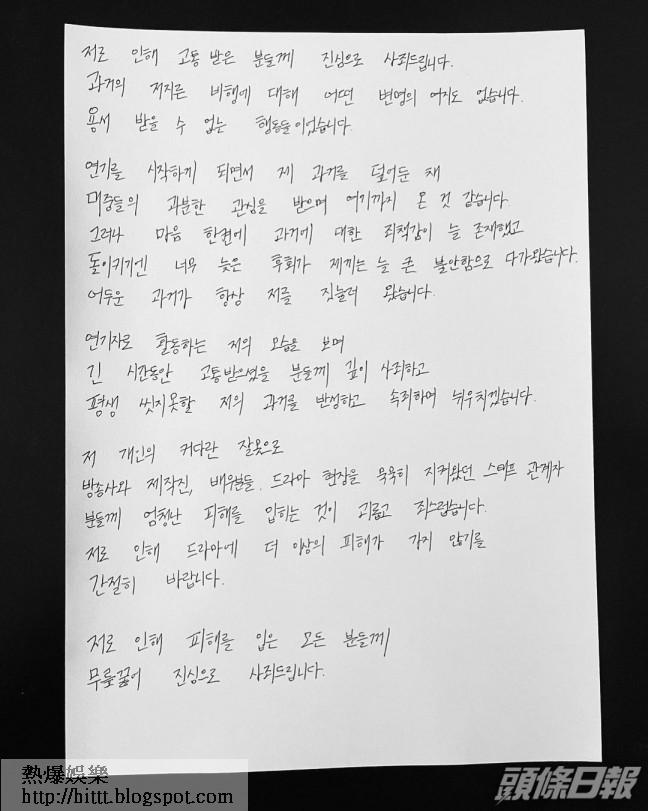 저로 인해 고통 받은 분들께 진심으로 사죄드립니다.
과거의 저지른 비행에 대해 어떤 변명의 여지도 없습니다.
용서 받을 수 없는 행동들이었습니다.
연기를 시작하게 되면서 제 과거를 덮어둔 채
대중들의 과분한 관심을 받으며 여기까지 온 것 같습니다.
그러나 마음 한켠에 과거에 대한 죄책감이 늘 존재했고
돌이키기엔 너무 늦은 후회가 저에게는 늘 큰 불안함으로 다가왔습니다.
어두운 과거가 항상 저를 짓눌러 왔습니다.
연기자로 활동하는 저의 모습을 보며
긴 시간동안 고통받으셨을 분들께 깊이 사죄하고
평생 씻지못할 저의 과거를 반성하고 속죄하며 뉘우치겠습니다.
저 개인의 커다란 잘못으로
방송사와 제작진, 배우분들, 드라마 현장을 묵묵히 지켜왔던 스태프 관계자
분들께 엄청난 피해를 입히는 것이 괴롭고 죄스럽습니다.
저로 인해 드라마에 더 이상의 피해가 가지 않기를
간절히 바랍니다.
저로 인해 피해를 입은 모든 분들께
무릎꿇어 진심으로 사죄드립니다.
熱爆娛樂
http://hittt.blogspot.com
頭條日報